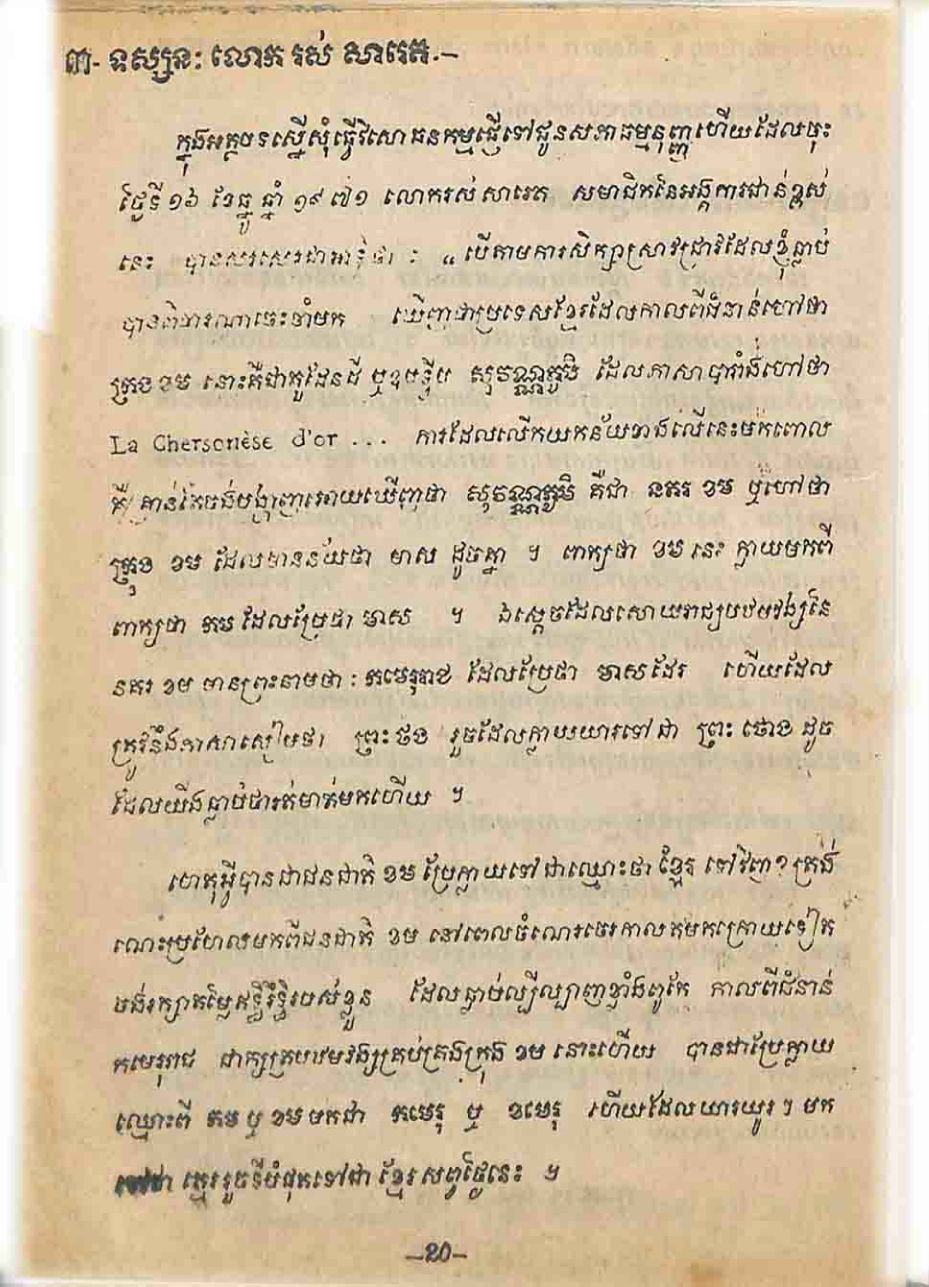 ៣- ទស្សនៈ លោក រស់ សារេត.—
ក្នុងអត្ថបទស្នើសុំធ្វើវិសោធនកម្មផ្ញើទៅជូនសភាធម្មនុញ្ញហើយដែលចុះ
ថ្ងៃទី ១៦ ខែធ្នូ ឆ្នាំ ១៩៧១ លោករស់ សារេត សមាជិកនៃអង្គការជាន់ខ្ពស់
នេះ បានសរសេរជាអាទិ៍ថា : „ បើតាមការសិក្សាស្រាវជ្រាវដែលខ្ញុំធ្លាប់
បានពិចារណាចេះចាំមក ឃើញថាប្រទេសខ្មែរដែលកាលពីជំនាន់ហៅថា
ក្រុង ខម នោះគឺជាភូដែនដី ឬឧបទ្វីប សុវណ្ណភូមិ ដែលភាសាបារាំងហៅថា
La Chersonèse d'or ... ការដែលលើកយកន័យខាងលើនេះមកពោល
គឺ គ្រាន់តែចង់បង្ហាញអោយឃើញថា សុវណ្ណភូមិ គឺជា នគរ ខម ឬហៅថា
ក្រុង ខម ដែលមានន័យថា មាស ដូចគ្នា ។ ពាក្យថា ខម នេះ ក្លាយមកពី
ពាក្យថា គម ដែលប្រែថា មាស ។ ឯស្តេចដែលសោយរាជ្យបឋមវង្សនៃ
នគរ ខម មានព្រះនាមថា : គមេរុរាជ ដែលប្រែថា មាសដែរ ហើយដែល
ត្រូវនឹងភាសាសៀមថា ព្រះ ថង រួចដែលក្លាយយារទៅជា ព្រះ ថោង ដូច
ដែលយើងធ្លាប់ថារត់មាត់មកហើយ ។
ហេតុអ្វីបានជាជនជាតិ ខម ប្រែក្លាយទៅជាឈ្មោះថា ខ្មែរ ទៅវិញ? ត្រង់
ណេះប្រហែលមកពីជនជាតិ ខម នៅពេលចំណេរចេរកាលតមកក្រោយទៀត
ចង់រក្សាតម្លៃឥទ្ធិរឹទ្ធិរបស់ខ្លួន ដែលធ្លាប់ល្បីល្បាញខ្លាំងពូកែ កាលពីជំនាន់
គមេរុរាជ ជាក្សត្របឋមវង្សគ្រប់គ្រងក្រុង ខម នោះហើយ បានជាប្រែក្លាយ
ឈ្មោះពី គម ឬ ខម មកជា គមេរុ ឬ ខមេរុ ហើយដែលយារយូរៗ មក
ទៅជា ខ្មេររួចទីបំផុតទៅជា ខ្មែរ សព្វថ្ងៃនេះ ។
—20—